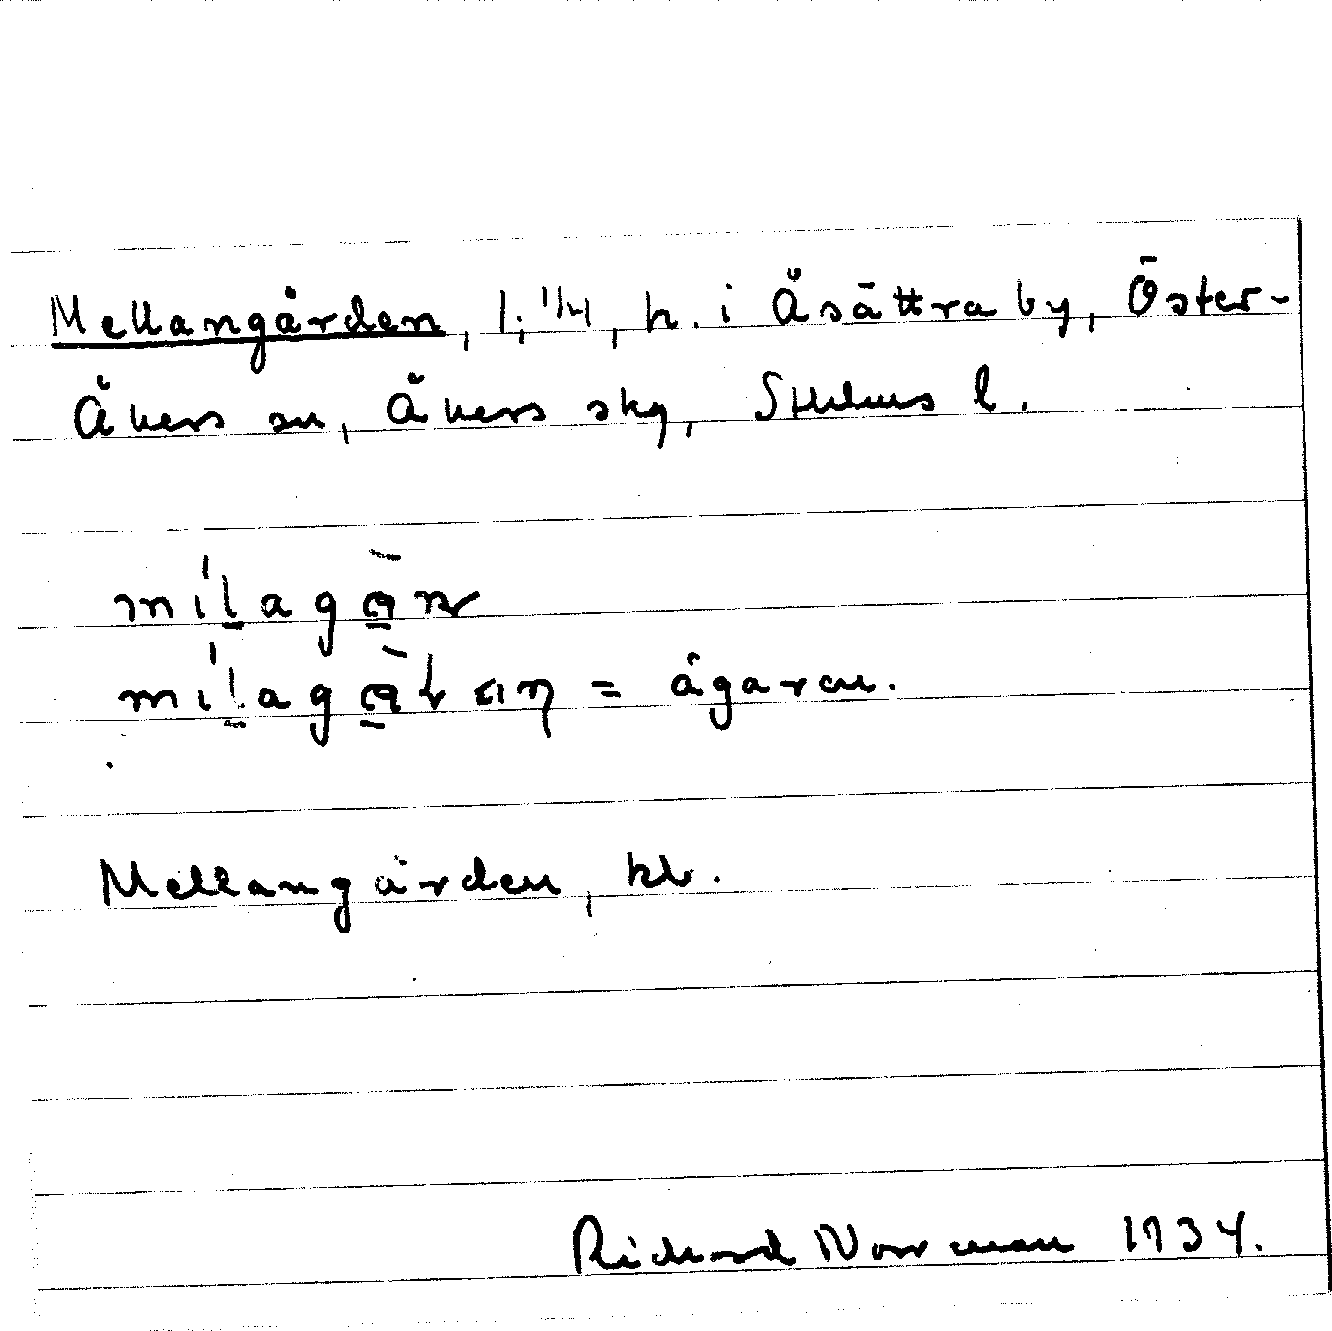 Mellangården, 1; 1/4, h. i Åsättra by, Öster-
Åkers sn, Åkers skg, Sthlms l.
= ägaren.
Mellangården, kb.
Richard Norrman 1934.